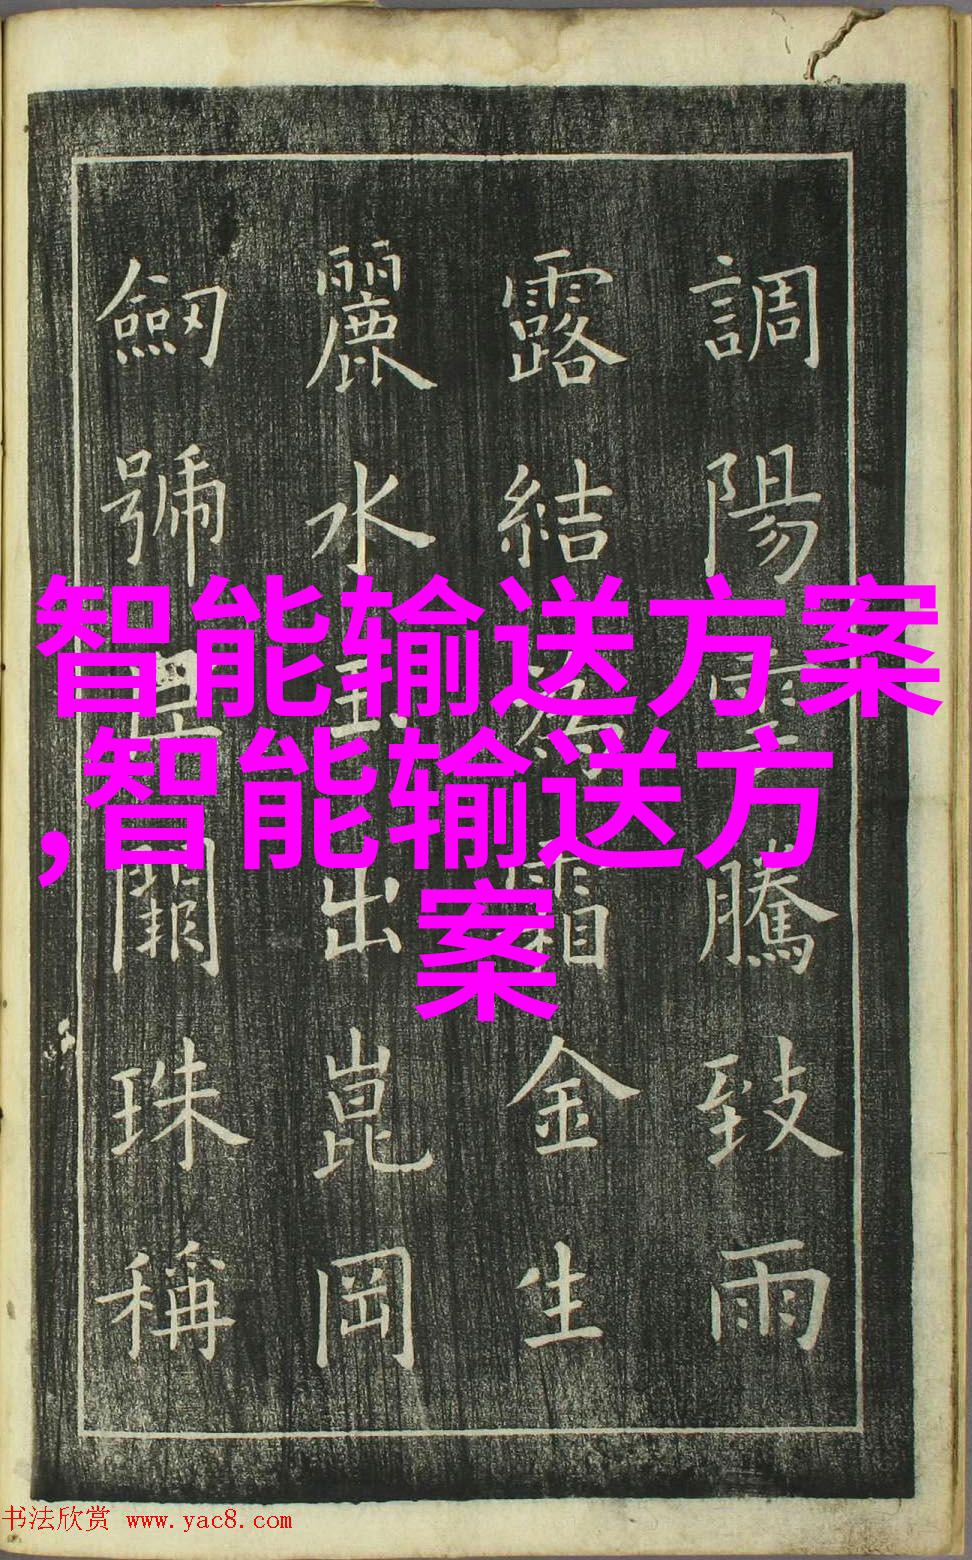 調陽雲騰致雨
露結為霜金生
麗水玉出崑岡
劒號巨闕珠稱
智能输送方案
,智能输送方
案
书法欣赏 www.yac8.com